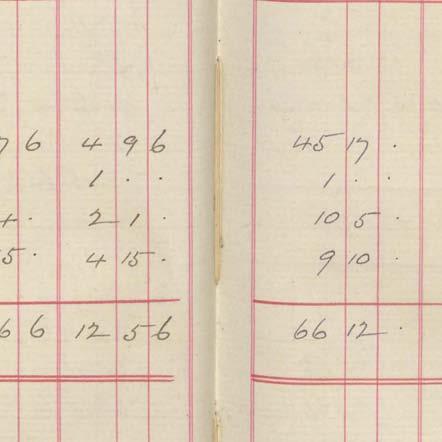 7 6 4 9 6 45 17 .
1 . . 1 . .
4 . 2 1 . 10 5 .
5 . 4 15 . 9 10 .
6 6 12 5 6 66 12 .